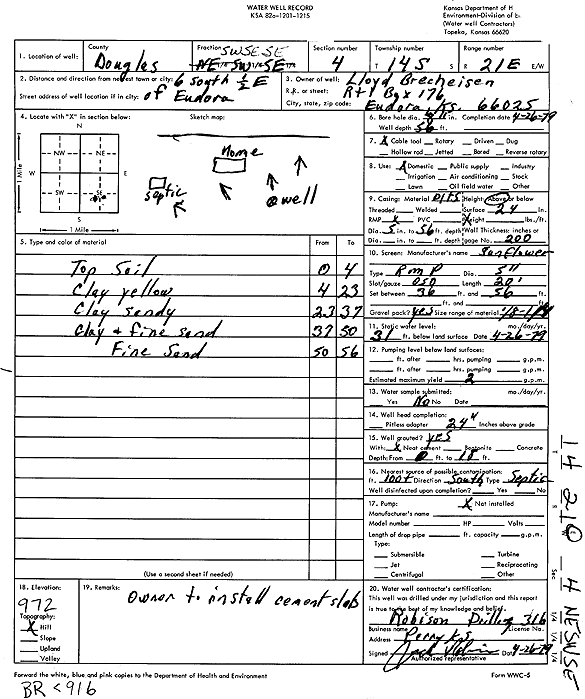 WATER WELL RECORD
KSA 82a-1201-1215
Kansas Department of H
Environment-Division of
(Water well Contractors)
Topeka, Kansas 66620
1. Location of well: County Douglas Fraction SWSESE NE 1/4 SW 1/4 SE 1/4 Section number 4 Township number T 14S S Range number R 21E E/W
2. Distance and direction from nearest town or city: 6 south 1/2 E
Street address of well location if in city: of Eudora
3. Owner of well: Lloyd Brecheisen
R.R. or street: Rt 1 Box 176
City, state, zip code: Eudora, Ks. 66025
4. Locate with "X" in section below: Sketch map:
N
NW NE
W E
SW SE
S
1 Mile
1 Mile
Home
septic
well
5. Type and color of material From To
Top Soil 0 4
Clay yellow 4 23
Clay sandy 23 37
Clay & fine sand 37 50
Fine Sand 50 56
(Use a second sheet if needed)
6. Bore hole dia. in. Completion date 4-26-79
Well depth 56 ft.
7. X Cable tool Rotary Driven Dug
Hollow rod Jetted Bored Reverse rotary
8. Use: X Domestic Public supply Industry
Irrigation Air conditioning Stock
Lawn Oil field water Other
9. Casing: Material Height: Above or below
Threaded Welded Surface 24 in.
RMP X PVC Weight lbs./ft.
Dia. 5 in. to 56 ft. depth Wall Thickness: inches or
Dia. in. to ft. depth gage No. 200
10. Screen: Manufacturer's name Sunflower
Type RMP Dia. 5"
Slot/gauze 050 Length 20'
Set between 36 ft. and 56 ft.
ft. and ft.
Gravel pack? Yes Size range of material
11. Static water level: mo./day/yr.
31 ft. below land surface Date 4-26-79
12. Pumping level below land surfaces:
ft. after hrs. pumping g.p.m.
ft. after hrs. pumping g.p.m.
Estimated maximum yield 2 g.p.m.
13. Water sample submitted: mo./day/yr.
Yes No No Date
14. Well head completion:
Pitless adapter 24" Inches above grade
15. Well grouted? yes
With: X Neat cement Bentonite Concrete
Depth: From 0 ft. to 10 ft.
16. Nearest source of possible contamination:
ft. 100+ Direction South Type Septic
Well disinfected upon completion? Yes No
17. Pump: X Not installed
Manufacturer's name
Model number HP Volts
Length of drop pipe ft. capacity g.p.m.
Type:
Submersible Turbine
Jet Reciprocating
Centrifugal Other
18. Elevation:
972
Topography:
X Hill
Slope
Upland
Valley
19. Remarks:
Owner to install cement slab
20. Water well contractor's certification:
This well was drilled under my jurisdiction and this report
is true to the best of my knowledge and belief.
Robison Drilling 316
Business name License No.
Address Perry Ks.
Signed Date 4-26-79
Authorized representative
Forward the white, blue and pink copies to the Department of Health and Environment
Form WWC-5
BR < 916
14 21 E 4 NESWSE
T R Sec 1/4 1/4 1/4